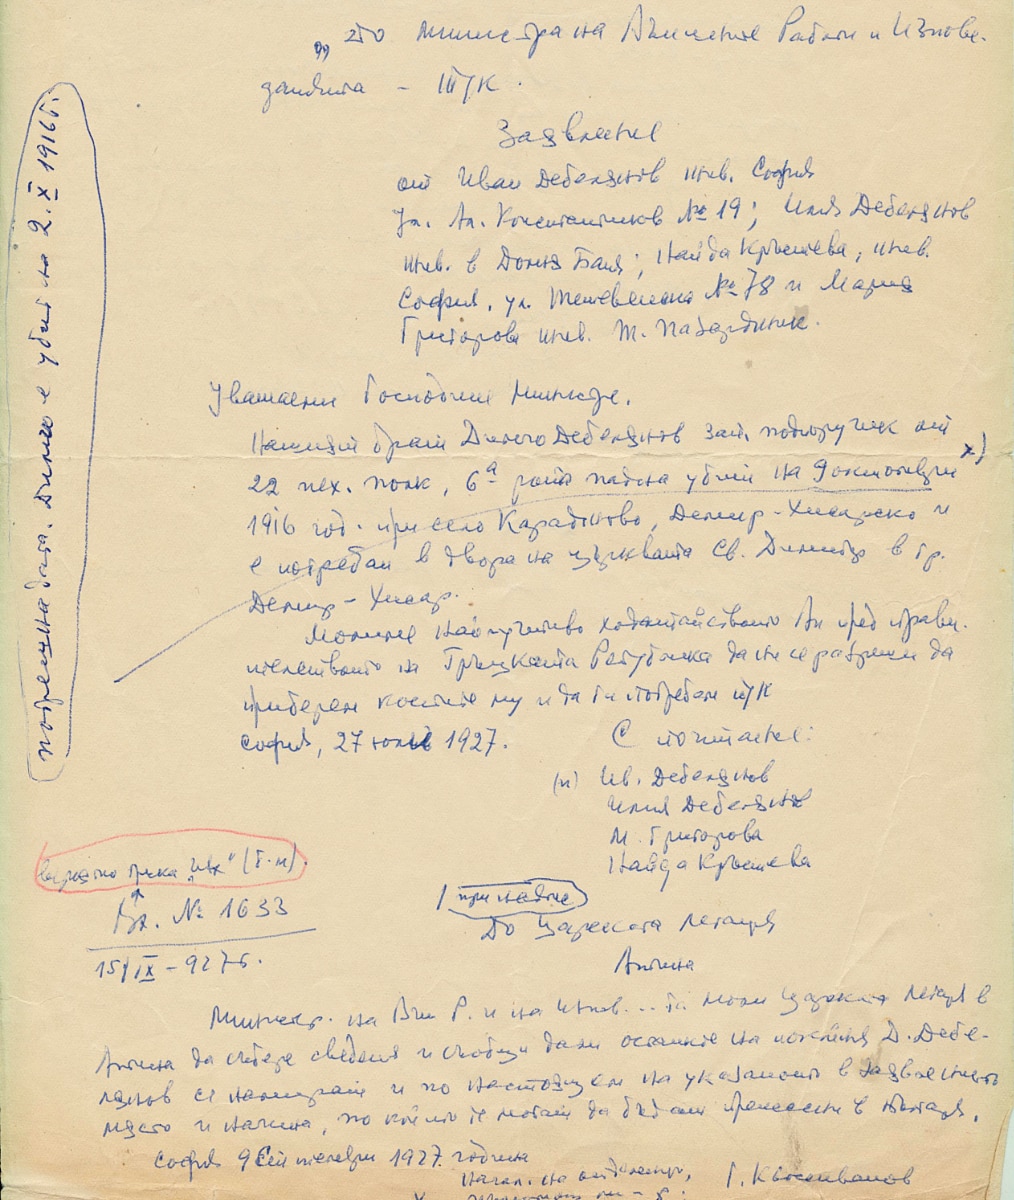 До Министра на Външните Работи и Изпове-
данията – ТУК.
Заявление
от Иван Дебелянов жив. София
ул. Ал. Константинов № 19; Илия Дебелянов
жив. в Долня Баня; Найда Кръстева, жив.
София, ул. Тетевенска № 78 и Мария
Григорова жив. Т. Пазарджик.
Уважаеми Господине Министре,
Нашият брат Димчо Дебелянов зап. подпоручик от
22 пех. полк, 6а рота падна убит на 9 октомври х)
1916 год. при село Караджово, Демир-Хисарско и
е погребан в двора на църквата Св. Димитър в гр.
Демир-Хисар.
Молиме най-учтиво ходатайството Ви пред прави-
телството на Гръцката Република да ни се разреши да
приберем костите му и да ги погребем тук
София, 27 юлий 1927.
С почитание:
(п) Ив. Дебелянов
Илия Дебелянов
М. Григорова
Найда Кръстева
погрешна дата. Димчо е убит на 2.X 1916 г.
вероятно "Изх" (Г.н)
Вх. № 1633
15/IX – 927 г.
До Царската Легация
Атина
Министер. на Вън. Р. и на Изпов...та моли Царската Легация в
Атина да събере сведения и съобщи дали останките на покойния Д. Дебе-
лянов се намират и по настоящем на указаното в заявлението
място и начина, по който те могат да бъдат пренесени в България.
София 9 Септемврий 1927 година
Начал. на отделение,